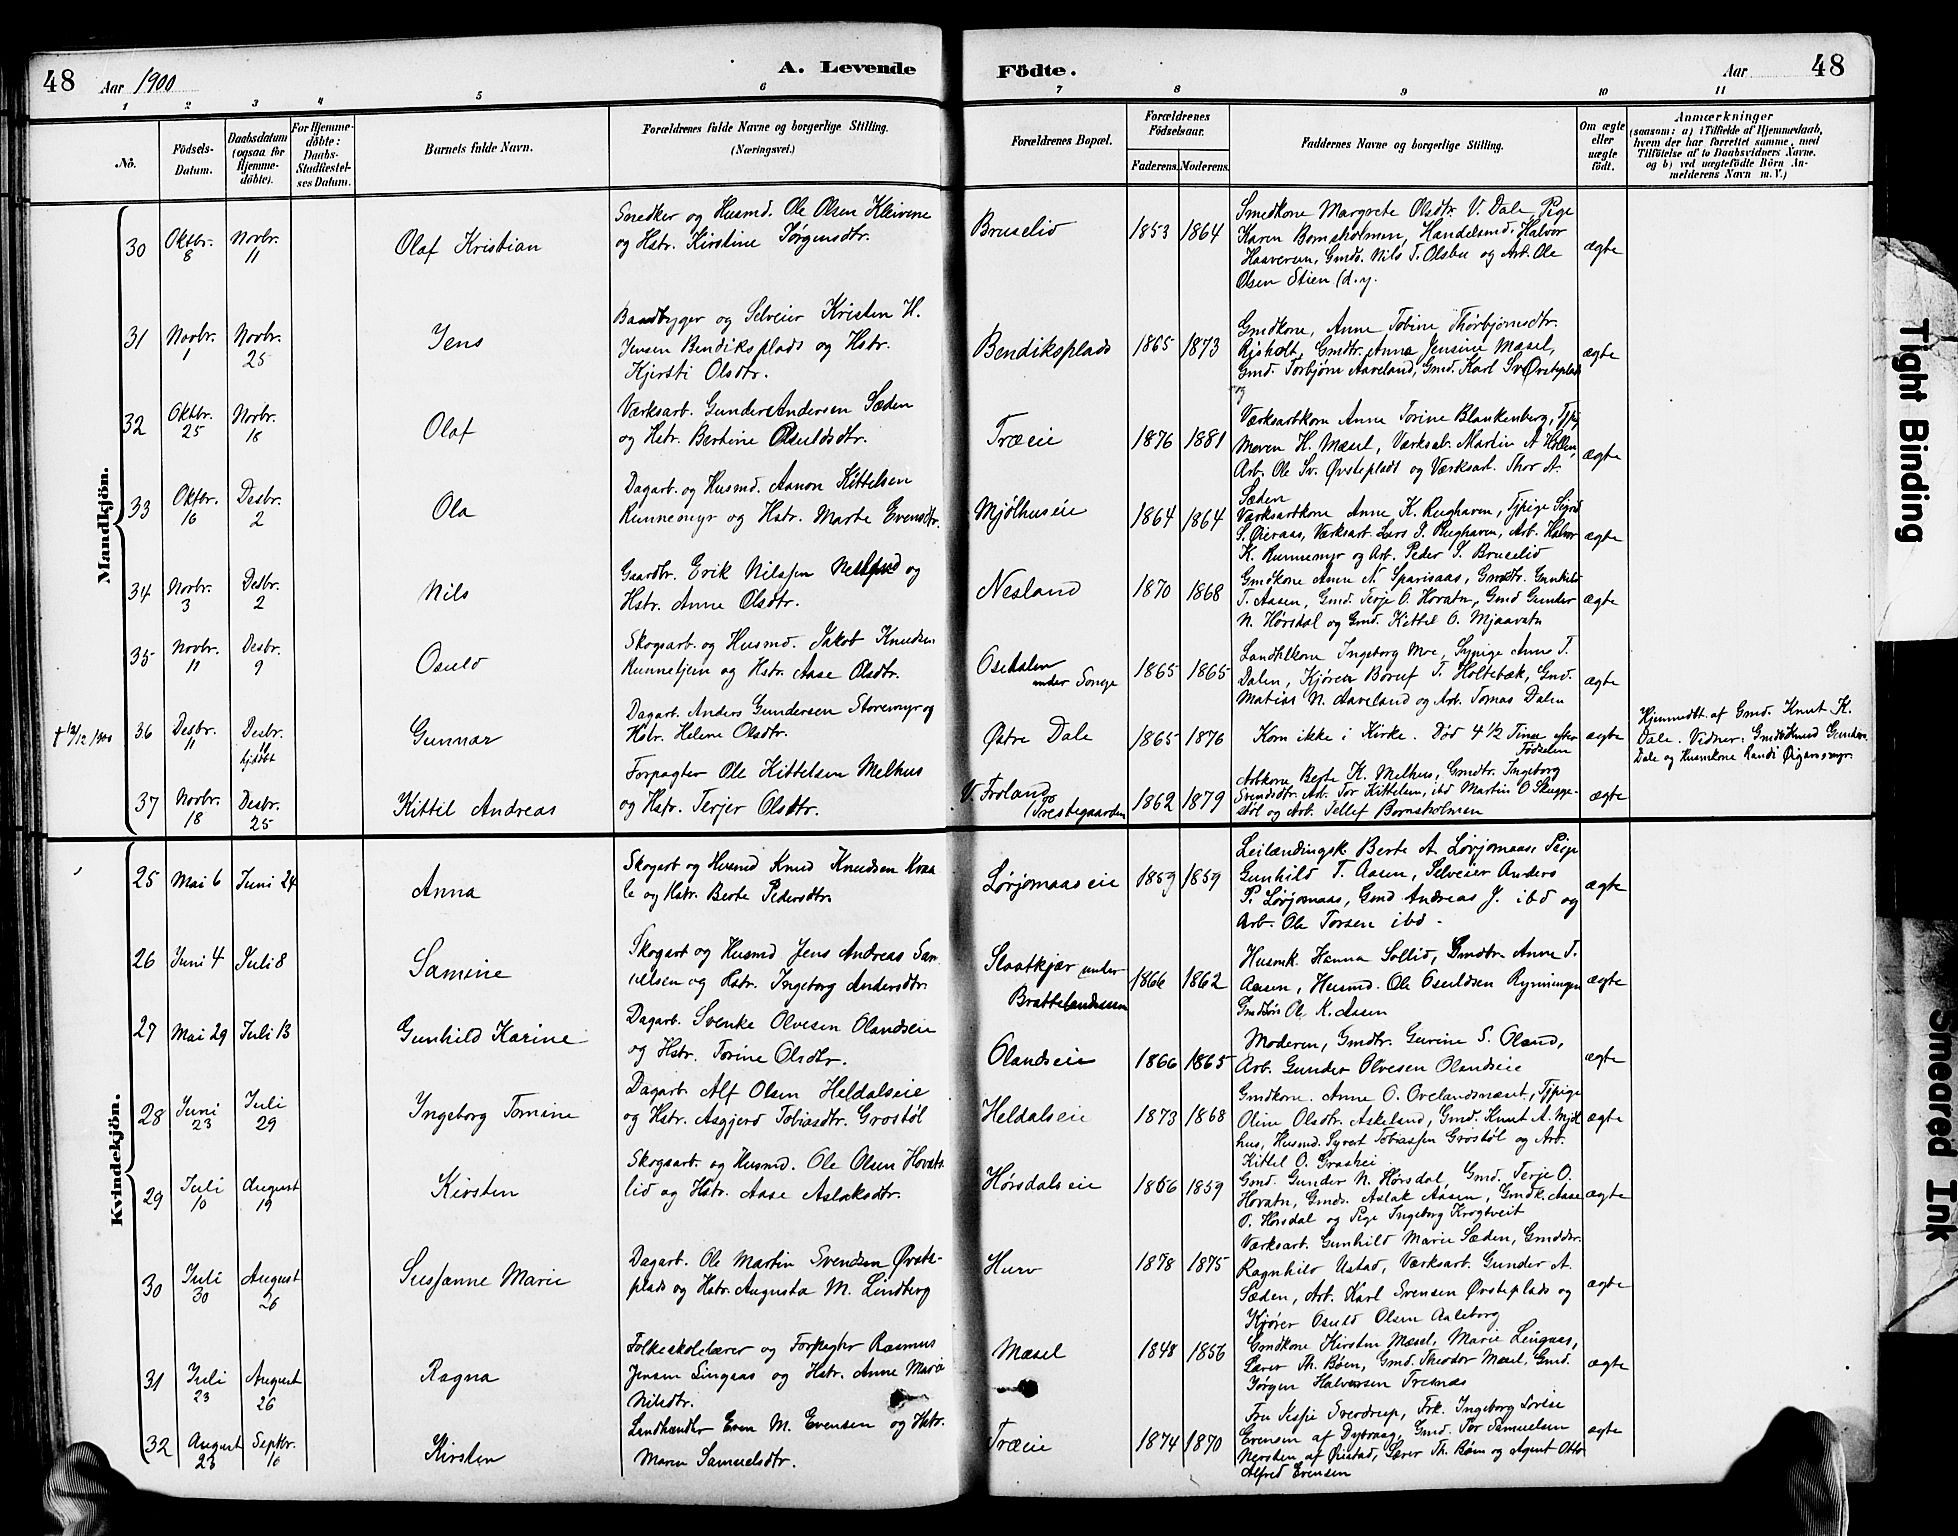 48 Aar 1900 A. Levende Födte. Aar 48
1 2 3 4 5 6 7 8 9 10 11
No.
Födsels-
Datum.
Daabsdatum
(ogsaa for
Hjemme-
döbte).
For Hjemme-
döbte:
Daabs-
Stadfæstel-
ses Datum.
Barnets fulde Navn.
Forældrenes fulde Navne og borgerlige Stilling.
(Næringsvei.)
Forældrenes Bopæl.
Forældrenes
Födselsaar.
Faderens. Moderens.
Faddernes Navne og borgerlige Stilling.
Om ægte
eller
uægte
födt.
Anmærkninger
(saasom: a) i Tilfælde af Hjemmedaab,
hvem der har forrettet samme, med
Tilföielse af to Daabsvidners Navne.
og b) ved uægtefödte Börn An-
melderens Navn m. V.)
Mandkjön.
30
Oktbr.
8
Novbr.
11
Olaf Kristian
Snedker og Husmd. Ole Olsen Kleivene
og Hstr. Kirstine Jørgensdtr.
Bruselid
1853 1864
Smedkone Margrete Olsdtr. V. Dale, Pige
Karen Bornsholmen, Handelsmd. Halvor
Haaverun, Gmds. Nils T. Olsbu og Arb. Ole
Olsen Stien (d. y.
ægte
31
Novbr.
1
Novbr.
25
Jens
Baadbygger og Selveier Kristen H.
Jensen Bendiksplads og Hstr.
Kjersti Olsdtr.
Bendiksplads
1865 1873
Gmdkone, Anne Tobine Thorbjørnsdtr.
Risholt, Gmdtr. Anna Jensine Mæsel,
Gmd. Torbjørn Aaveland, Gmd. Karl Sv Øvsteplads
ægte
32
Oktbr.
25
Novbr.
18
Olaf
Værksarb. Gunder Andersen Sæden
og Hstr. Bertine Osuldsdtr.
Træeie
1876 1881
Værksarbkon Anne Torine Blankenberg, Tjpi
Maren H. Mæsel, Værksab. Martin A Hollen,
Arb. Ole Sv. Øvsteplads og Værksarb. Thor A.
Sæden
ægte
33
Oktbr.
16
Desbr.
2
Ola
Dagarb. og Husmd. Aanon Kittelsen
Runnemyr og Hstr. Marte Evensdtr.
Mjølhuseie
1864 1864
Værksarbkone Anne K. Rughaven, Tjpige Sigrid
S. Øieraas, Værksarb. Lars P. Rughaven, Arb. Halvor
K. Runnemyr og Arb. Peder J. Bruselid
ægte
34
Novbr.
3
Desbr.
2
Nils
Gaardbr. Erik Nilssen Nesland og
Hstr. Anne Olsdtr.
Nesland
1870 1868
Gmdkone Anne N. Sparisaas, Gmdtr. Gunhild
T. Aasen, Gmd. Terje O. Hovatn, Gmd Gunder
N. Hørsdal og Gmd. Kittil O. Mjaavatn
ægte
35
Novbr.
11
Desbr.
9
Osuld
Skogsarb. og Husmd. Jakob Knudsen
Runnetjern og Hstr. Aase Olsdtr.
Osedalen
under Songe
1865 1865
Landhlkone Ingeborg Moe, Sypige Anne T.
Dalen, Kjører Boruf T. Holtebæk, Gmd.
Matias N. Aaveland og Arb. Tomas Dalen
ægte
† 12/12 1900
36
Desbr.
11
Desbr.
11
hjdøbt
Gunnar
Dagarb. Anders Gundersen Storemyr og
Hstr. Helene Olsdtr.
Østre Dale
1865 1876
Kom ikke i Kirke. Død 4½ Time efter
Fødselen
ægte
Hjemmedbt. af Gmd. Knut K.
Dale. Vidner: Gmds Knud Gunders.
Dale og Husmkone Randi Øigarsmyr.
37
Novbr.
18
Desbr.
25
Kittil Andreas
Forpagter Ole Kittelsen Melhus
og Hstr. Terjer Olsdtr.
V. Froland
(Prestegaarden
1862 1879
Arbkone Berte K. Melhus, Gmdtr. Ingeborg
Svendsdtr. Arb. Tor Kittelsen, ibd Martin O Skugge-
støl og Arb. Tellef Bornsholmen
ægte
Kvindekjön.
25
Mai 6
Juni 24
Anna
Skogarb og Husmd Knud Knudsen Kvaa-
le og Hstr. Berte Pedersdtr.
Lørjomaaseie
1859 1859
Leilændingsk. Berte A. Lørjomaas, Pige
Gunhild T. Aasen, Selveier Anders
P. Lørjomaas, Gmd Andreas J. ibd og
Arb. Ole Torsen ibd.
ægte
26
Juni 4
Juli 8
Samine
Skogarb og Husmd Jens Andreas Sam-
uelsen og Hstr. Ingeborg Andersdtr.
Slaatkjær under
Brattelandsaasen
1866 1862
Husmk. Hanna Sollid, Gmdtr. Anne T.
Aasen, Husmd. Ole Osuldsen Rynningen
Gmdsøn Ole K. Aasen
ægte
27
Mai 29
Juli 13
Gunhild Karine
Dagarb. Svenke Olvesen Olandseie
og Hstr. Torine Olsdtr.
Olandseie
1866 1865
Moderen, Gmdtr. Gurine S. Oland,
Arb. Gunder Olvesen Olandseie
ægte
28
Juni
23
Juli
29
Ingeborg Tomine
Dagarb. Alf Olsen Heldalseie
og Hstr. Asgjerd Tobiasdtr. Grostøl
Heldalseie
1873 1868
Gmdkone. Anne O. Ovelandsnæset, Tjpige
Oline Olsdtr. Askeland, Gmd. Knut A. Mjøl
hus, Husmd. Syvert Tobiassen Grostøl og Arb.
Kittel O. Graskei
ægte
29
Juli
10
August
19
Kirsten
Skogsarb. og Husmd. Ole Olsen Hovats-
lid og Hstr. Aase Aslaksdtr.
Hørsdalseie
1866 1859
Gmd. Gunder N. Hørsdal, Gmd. Terje O.
Hovatn, Gmds. Aslak Aasen, Gmdk. Aase
O. Hørsdal og Pige Ingeborg Krogtveit
ægte
30
Juli
30
August
26
Susjanne Marie
Dagarb. Ole Martin Svendsen Øvste-
plads og Hstr. Augusta M. Lindberg
Hurv
1878 1875
Værksarb. Gunhild Marie Sæden, Gmddtr.
Ragnhild Ustad, Værksarb. Gunder A.
Sæden, Arb. Karl Svensen Øvsteplads og
Kjører Osuld Olsen Aaleborg
ægte
31
Juli
23
August
26
Ragna
Folkeskolelærer og Forpagter Rasmus
Jensen Lingaas og Hstr. Anne Marie
Nilsdtr.
Mæsel
1848 1856
Gmdkone Kirsten Mæsel, Marie Lingaas,
Lærer Th. Bøen, Gmd. Theodor Mæsel, Gmd.
Jørgen Halvorsen Trevnæs
ægte
32
August
23
Septbr.
16
Kirsten
Landhandler Even M. Evensen og Hstr.
Maren Samuelsdtr.
Træeie
1874 1870
Fru Sverdrup, Frk. Ingeborg Lovise
Evensen af Dybvaag, Gmd. Tor Samuelsen
Nersten af Øiestad, Lærer Th. Bøen og Agent Otto
Alfred Evensen
ægte
Tight Binding
Smeared Ink